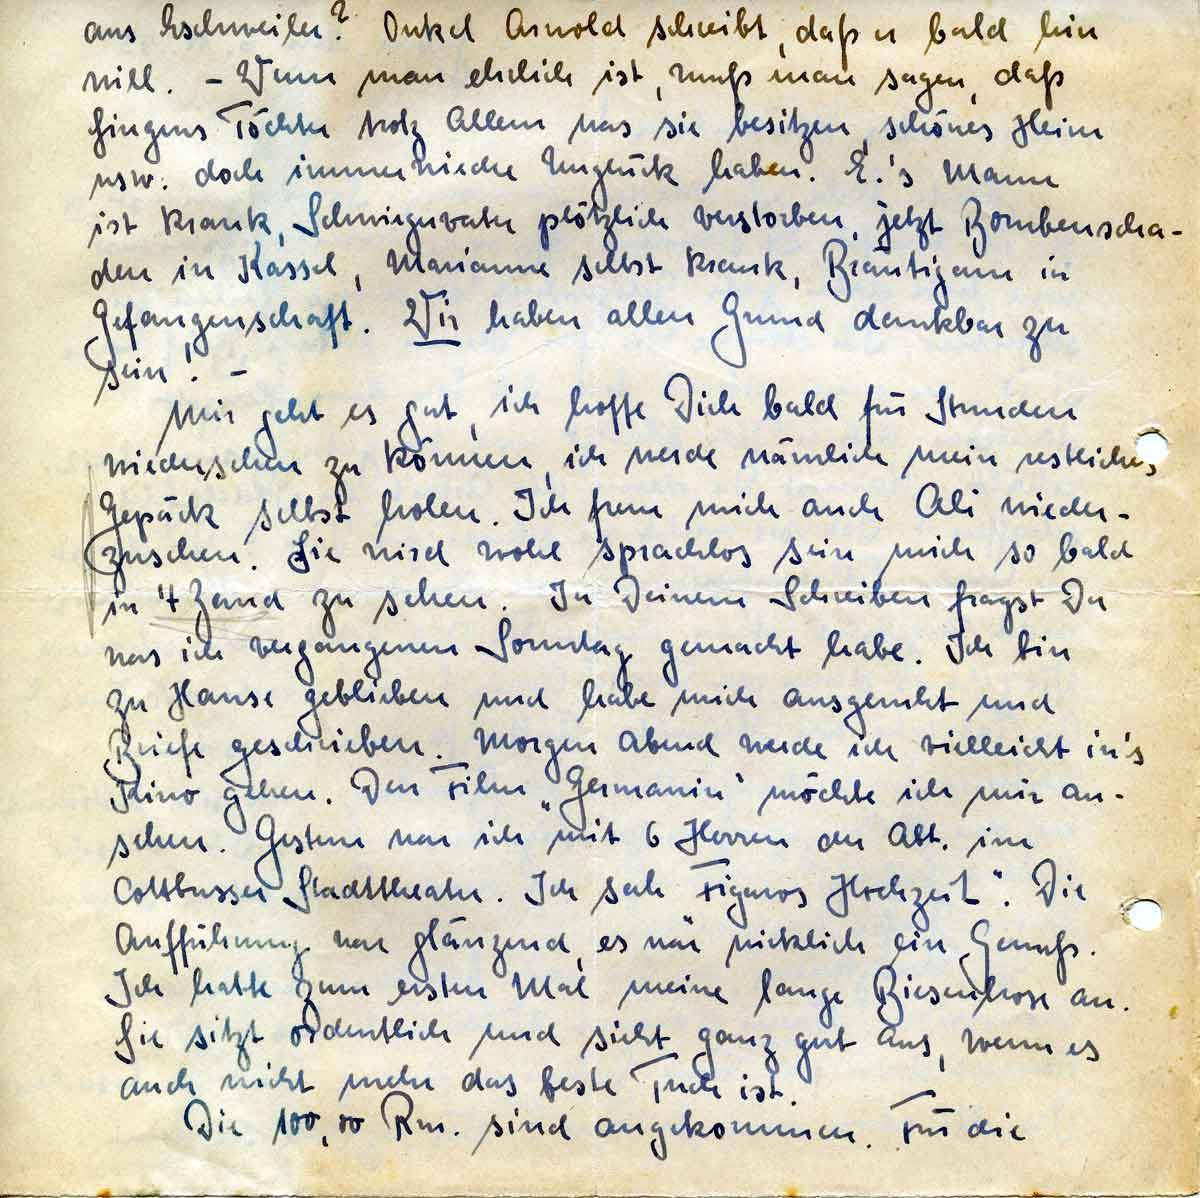 aus Eschweiler? Onkel Arnold schreibt, daß er bald hin
will. – Wenn man ehrlich ist, muß man sagen, daß
Töchter trotz Allem was sie besitzen, schönes Heim
usw. doch immer wieder Unglück haben. E.'s Mann
ist krank, Schwiegervater plötzlich verstorben, jetzt Bombenscha-
den in Kassel, Marianne selbst krank, Bräutigam in
Gefangenschaft. Wir haben allen Grund dankbar zu
sein! –
Mir geht es gut, ich hoffe Dich bald für Stunden
wiedersehen zu können, ich werde nämlich mein restliches
Gepäck selbst holen. Ich freu mich auch Ali wieder-
zusehen. Sie wird wohl sprachlos sein mich so bald
in 't Zand zu sehen. In Deinem Schreiben fragst Du
was ich vergangenen Sonntag gemacht habe. Ich bin
zu Hause geblieben und habe mich ausgeruht und
Briefe geschrieben. Morgen Abend werde ich vielleicht in's
Kino gehen. Den Film „Germanin" möchte ich mir an-
sehen. Gestern war ich mit 6 Herren der Abt. im
Cottbusser Stadttheater. Ich sah „Figaros Hochzeit". Die
Aufführung war glänzend, es war wirklich ein Genuß.
Ich hatte zum ersten Mal meine lange Biesenhose an.
Sie sitzt ordentlich und sieht ganz gut aus, wenn es
auch nicht mehr das beste Tuch ist.
Die 100,00 Rm. sind angekommen. Für die